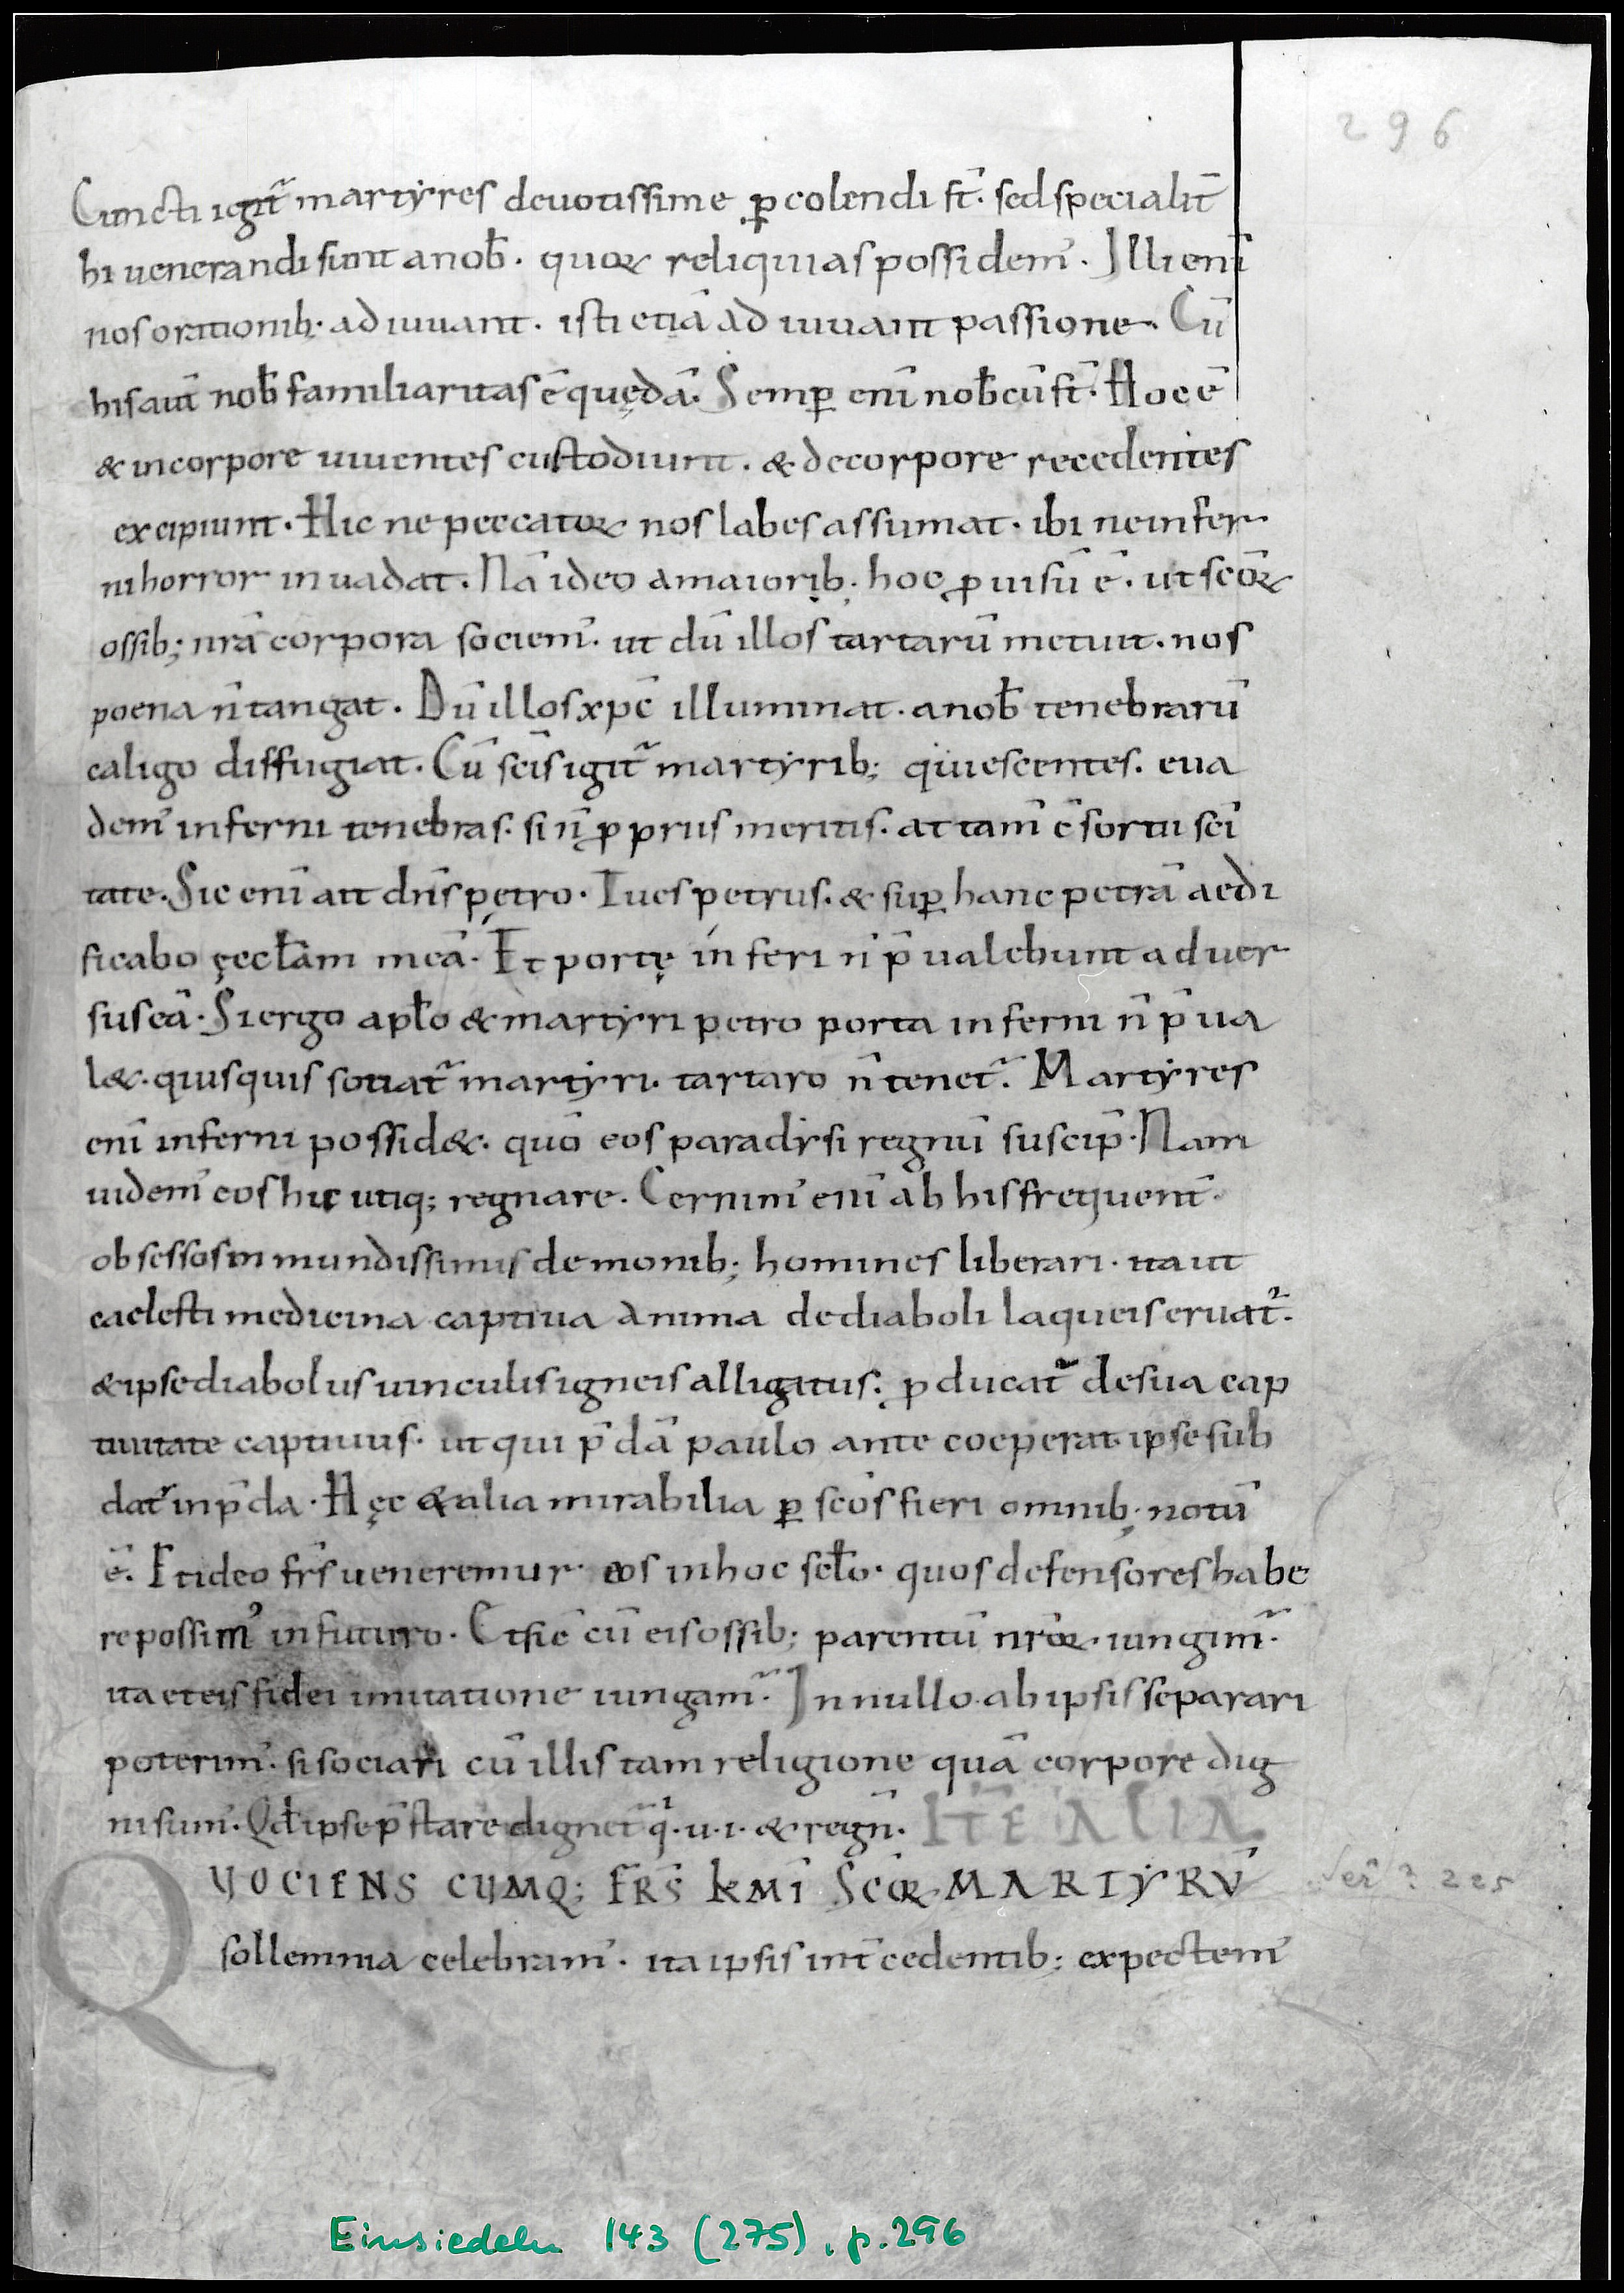 296
Cuncti igit̃ martyres deuotissime ꝑcolendi st̄. sed specialit̄
hi uenerandi sunt anob̄. quoꝝ reliquias possidem̄. Illi eni̅
nos orationib; adiuuant. isti etiā adiuuant passione. Cū
his aūt nob̄ familiaritas ē quędā. Semꝑ eni̅ nob̄cū st̄. Hoc ē
& incorpore uiuentes custodiunt. & decorpore recedentes
excipiunt. Hic ne peccatoꝝ nos labes assumat. ibi ne infer
ni horror inuadat. Nā ideo amaiorib; hoc ꝓuisū ē. ut scōꝝ
ossib; nrā corpora sociem̄. ut dū illos tartarū metuit. nos
poena n̄ tangat. Dū illos xp̄c illuminat. anob̄ tenebrarū
caligo diffugiat. Cū scīs igit̃ martyrib; quiescentes. eua
dem̄ inferni tenebras. si n̄ ꝓpriis meritis. attam̄ c̄sortii sci̅
tate. Sic eni̅ ait dn̄s petro. Tu es petrus. & suꝑ hanc petrā aedi
ficabo ęccl̄am meā. Et portę inferi n̄ p̄ualebunt aduer
sus eā. Si ergo apl̄o & martyri petro porta inferni n̄ p̄ua
l&. quisquis sotiat̃ martyri. tartaro n̄ tenet̃. Martyres
eni̅ inferni possid&. quō eos paradysi regnū suscip̄. Nam
uidem̄ eos hic utiq; regnare. Cernim̄ eni̅ ab his frequent̄
obsessos inmundissimis demonib; homines liberari. ita ut
caelesti medicina captiua anima dediaboli laqueis eruat̃.
& ipse diabolus uinculis igneis alligatus. ꝓducat̃ desua cap
tiuitate captiuus. ut qui p̄dā paulo ante coeperat ipse sub
dat̃ inp̄da. Hęc & alia mirabilia ꝑ scōs fieri omnib; notū
ē. Et ideo fr̄s ueneremur eos inhoc scl̄o. quos defensores habe
re possim᾽ in futuro. Et sic̄ cū eis ossib; parentū nr̄oꝝ. iungim̃.
ita et eis fidei imitatione iungam̃. In nullo ab ipsis separari
poterim̄. si sociari cū illis tam religione quā corpore dig
ni sum̄. Qd̄ ipse p̄stare dignet̃ q̄. u. i. & regn̄. ITĒ ALIA
QUOCIENSCUMQ; FR̄S KMĪ S̄CŌꝜ MARTYRŪ
sollemnia celebram̄. ita ipsis int̄cedentib; expectem̄
225
Einsiedeln 143 (275), p. 296